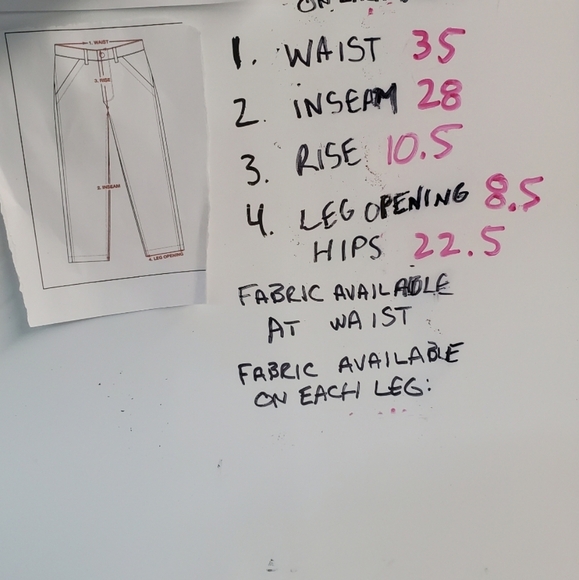 1. WAIST
3. RISE
2. INSEAM
4. LEG OPENING
1. WAIST 35
2. INSEAM 28
3. RISE 10.5
4. LEG OPENING 8.5
HIPS 22.5
FABRIC AVAILABLE
AT WAIST
FABRIC AVAILABLE
ON EACH LEG: